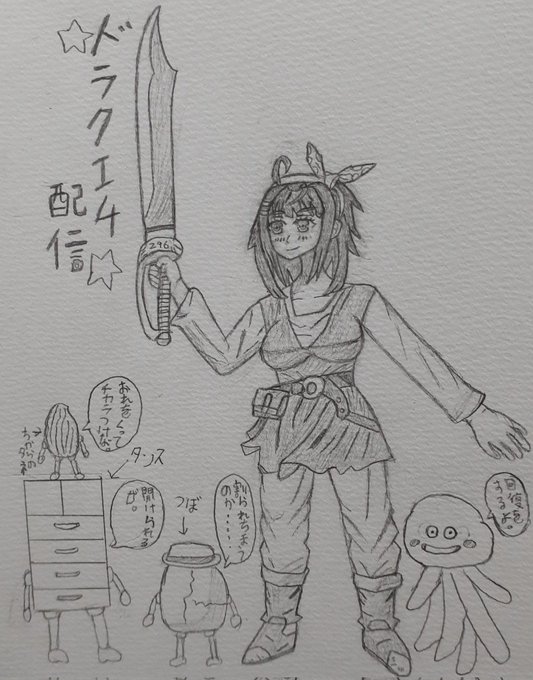 ☆ドラクエ4
配信☆
296
おれをくって
チカラつけな。
ちからの
タネ
タンス
開けられる
ぜ。
つぼ
割られちまう
のか……
回復を
するよ。